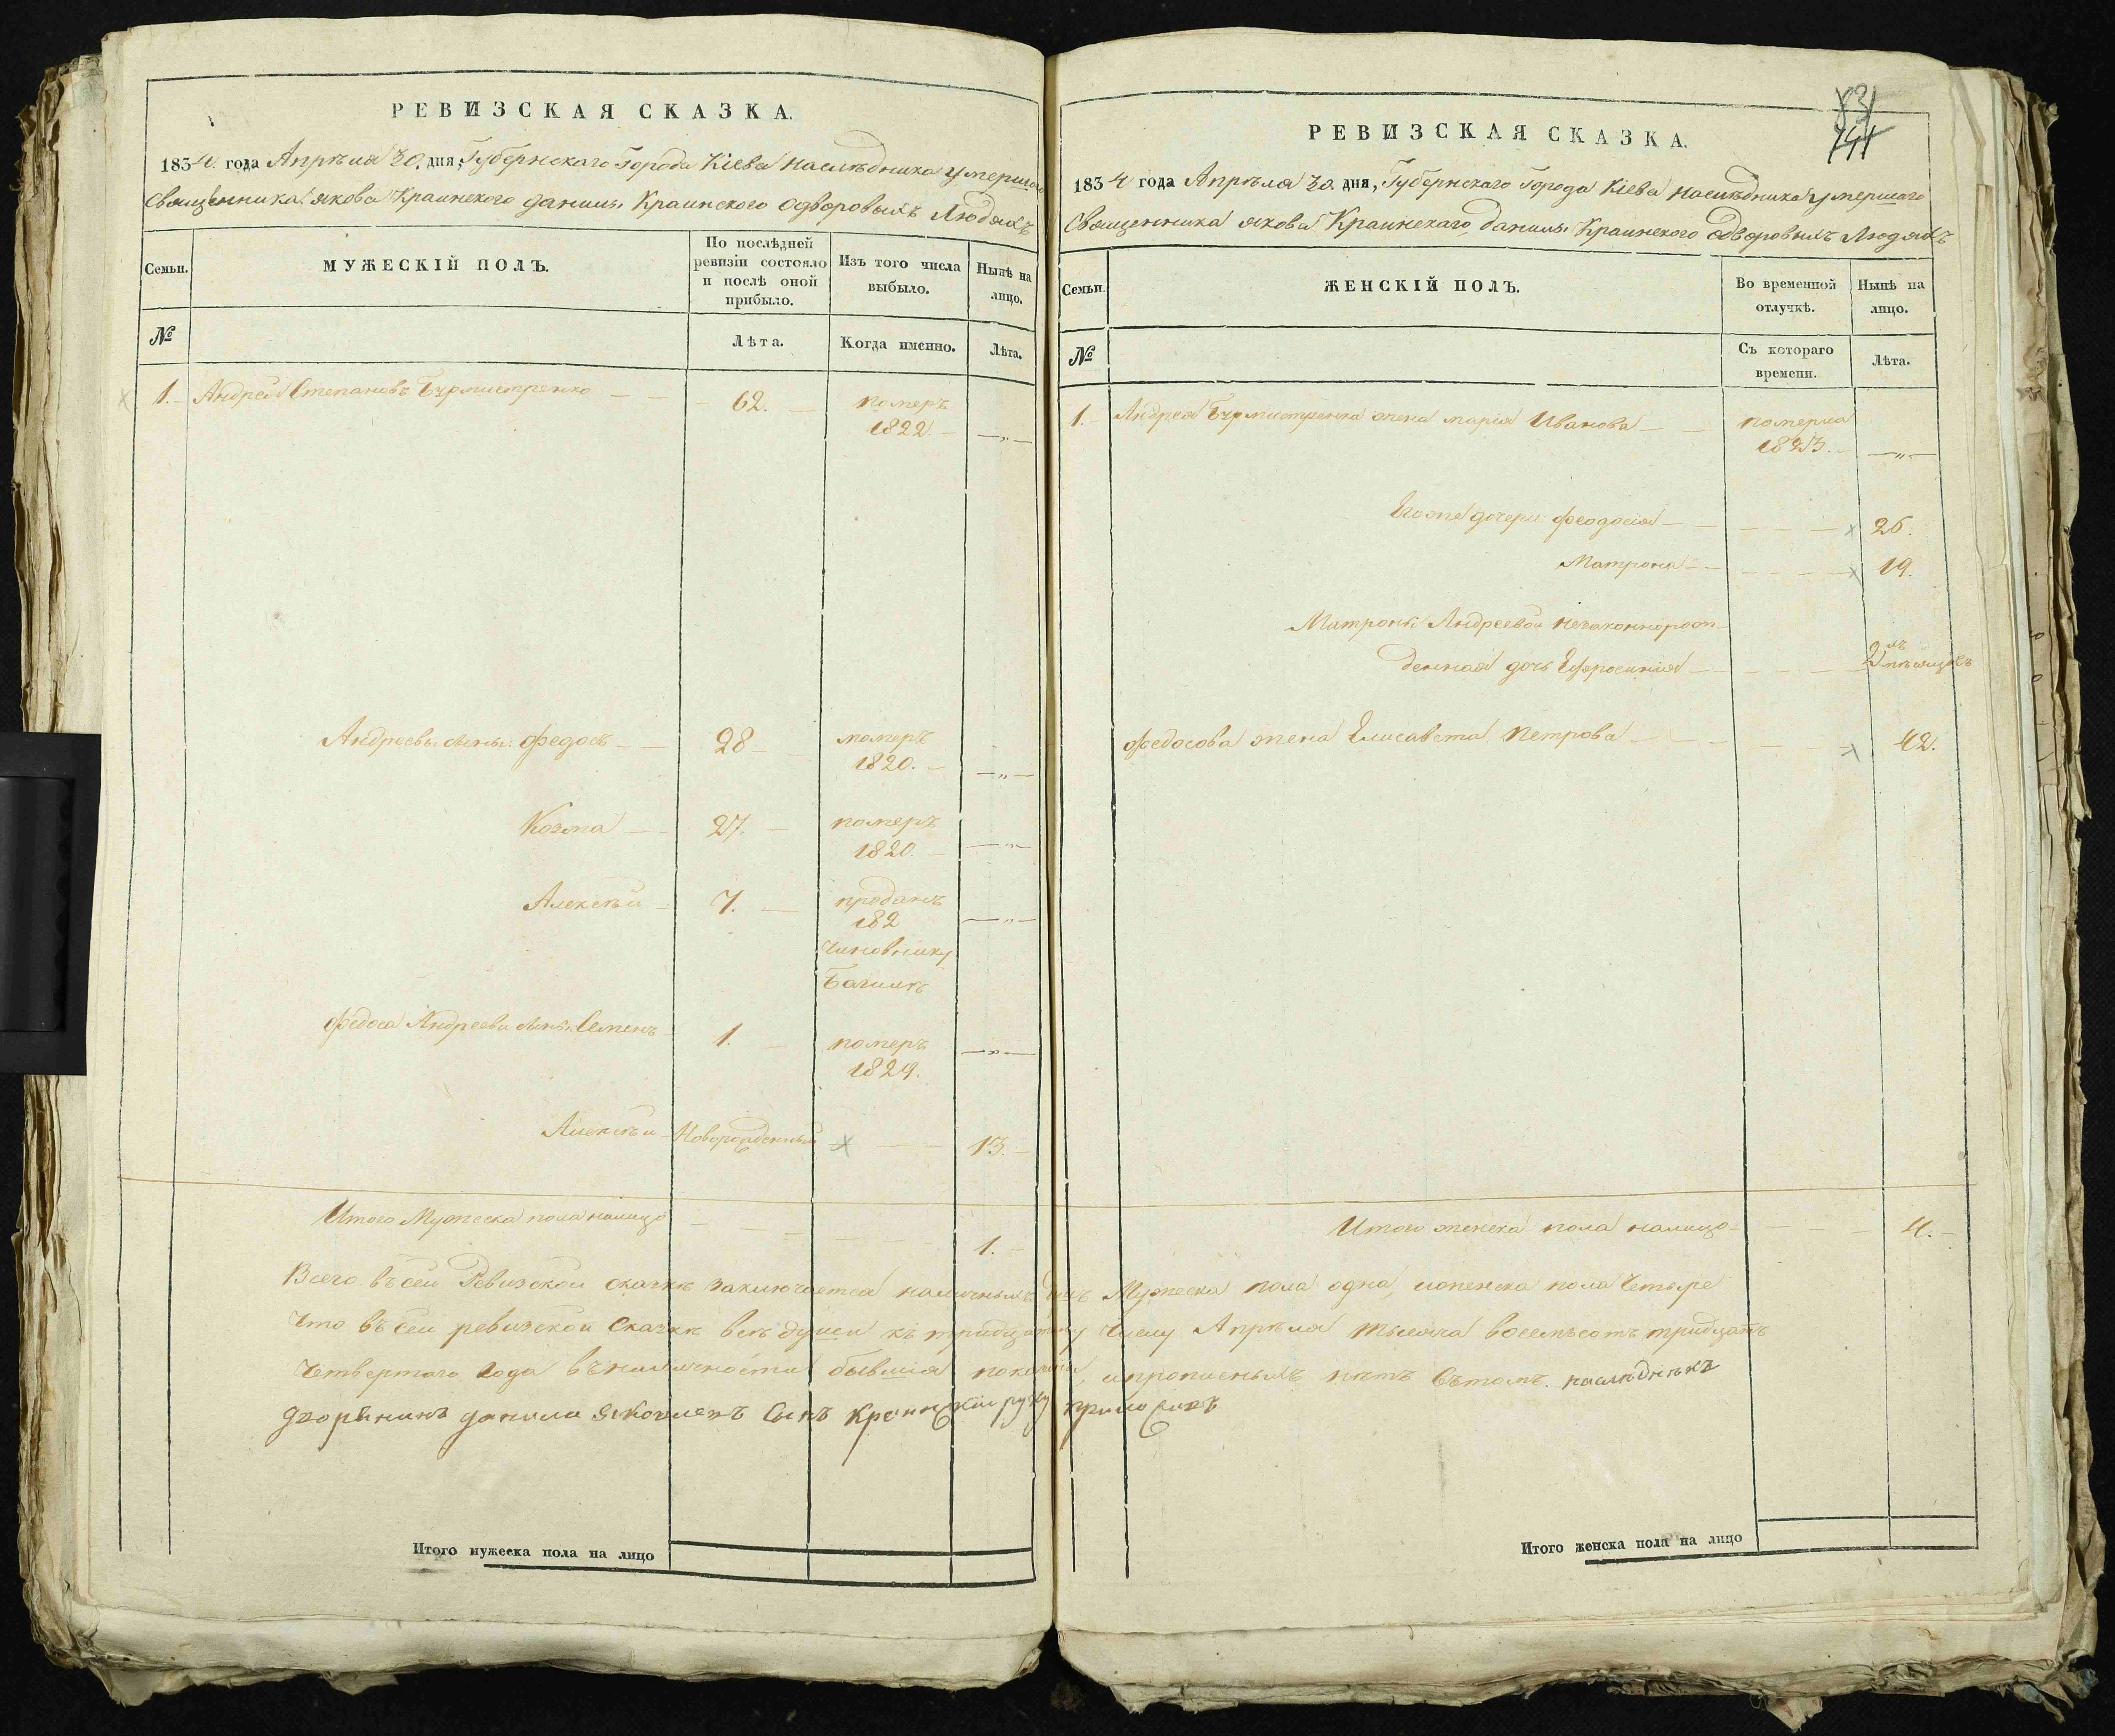 РЕВИЗСКАЯ СКАЗКА.
1834. года Апрѣля 30. дня, Губернскаго Города Кіева наслѣдника умершаго
Священника Якова Краинского Данилы Краинского одворовыхъ Людяхъ
Семьи.
МУЖЕСКІЙ ПОЛЪ.
По послѣдней
ревизіи состояло
и послѣ оной
прибыло.
Изъ того числа
выбыло.
Нынѣ на
лицо.
№
Лѣта.
Когда именно.
Лѣта.
1. Андрей Степановъ Бурмистренко 62. померъ
1822. "
Андреевы сыны: Федосъ 28 померъ
1820. "
Козма 27. померъ
1820. "
Алексѣй 7. проданъ
182 "
Чиновнику
Федоса Андреева сынъ Семенъ 1. померъ "
1829.
Алексѣй Новорожденный 13.
Итого Мужеска пола налицо 1.
Итого мужеска пола на лицо
83
141
РЕВИЗСКАЯ СКАЗКА.
1834 года Апрѣля 30. дня, Губернскаго Города Кіева наслѣдника умершаго
Священника Якова Краинскаго Данилы Краинского одворовыхъ Людяхъ
Семьи.
ЖЕНСКІЙ ПОЛЪ.
Во временной
отлучкѣ.
Нынѣ на
лицо.
№
Съ котораго
времени.
Лѣта.
1. Андрея Бурмистренка жена Марія Иванова померла
1823. "
Егоже дочери: Феодосія 26.
Матрона 19.
Матроны Андреевой незаконнорож-
денная дочь Ефросинія 2 мѣсяцовъ
Федосова жена Елисавета Петрова 42.
Итого женска пола налицо 4.
Всего въ сей Ревизской сказкѣ заключается наличныхъ Мужеска пола одна, иженска пола Четыре
Что въ сей ревизской Сказкѣ всѣ души къ тридцатому Числу Апрѣля тысяча восемьсотъ тридцать
Четвертаго Года въ наличности бывшія показаны, ипрописныхъ нѣтъ Вътомъ. наслѣдникъ
дворянинъ данило Яковлевъ Сынъ Краинскій руку приложилъ
Итого женска пола на лицо